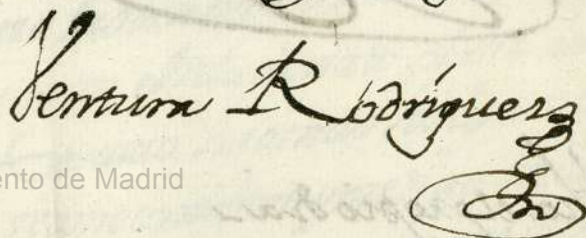 Ventura Rodríguez
ento de Madrid